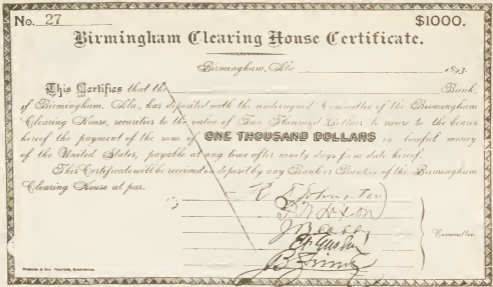 No. 27 $1000.
Birmingham Clearing House Certificate.
Birmingham, Ala. 1893
This Certifies that the Bank,
of Birmingham, Ala., has deposited with the undersigned Committee of the Birmingham
Clearing House, securities to the value of Two Thousand Dollars to secure to the bearer
hereof the payment of the sum of ONE THOUSAND DOLLARS in lawful money
of the United States, payable at any time after ninety days from date hereof.
This Certificate will be received on deposit by any Bank or Banker of the Birmingham
Clearing House at par.
Johnston
Committee.